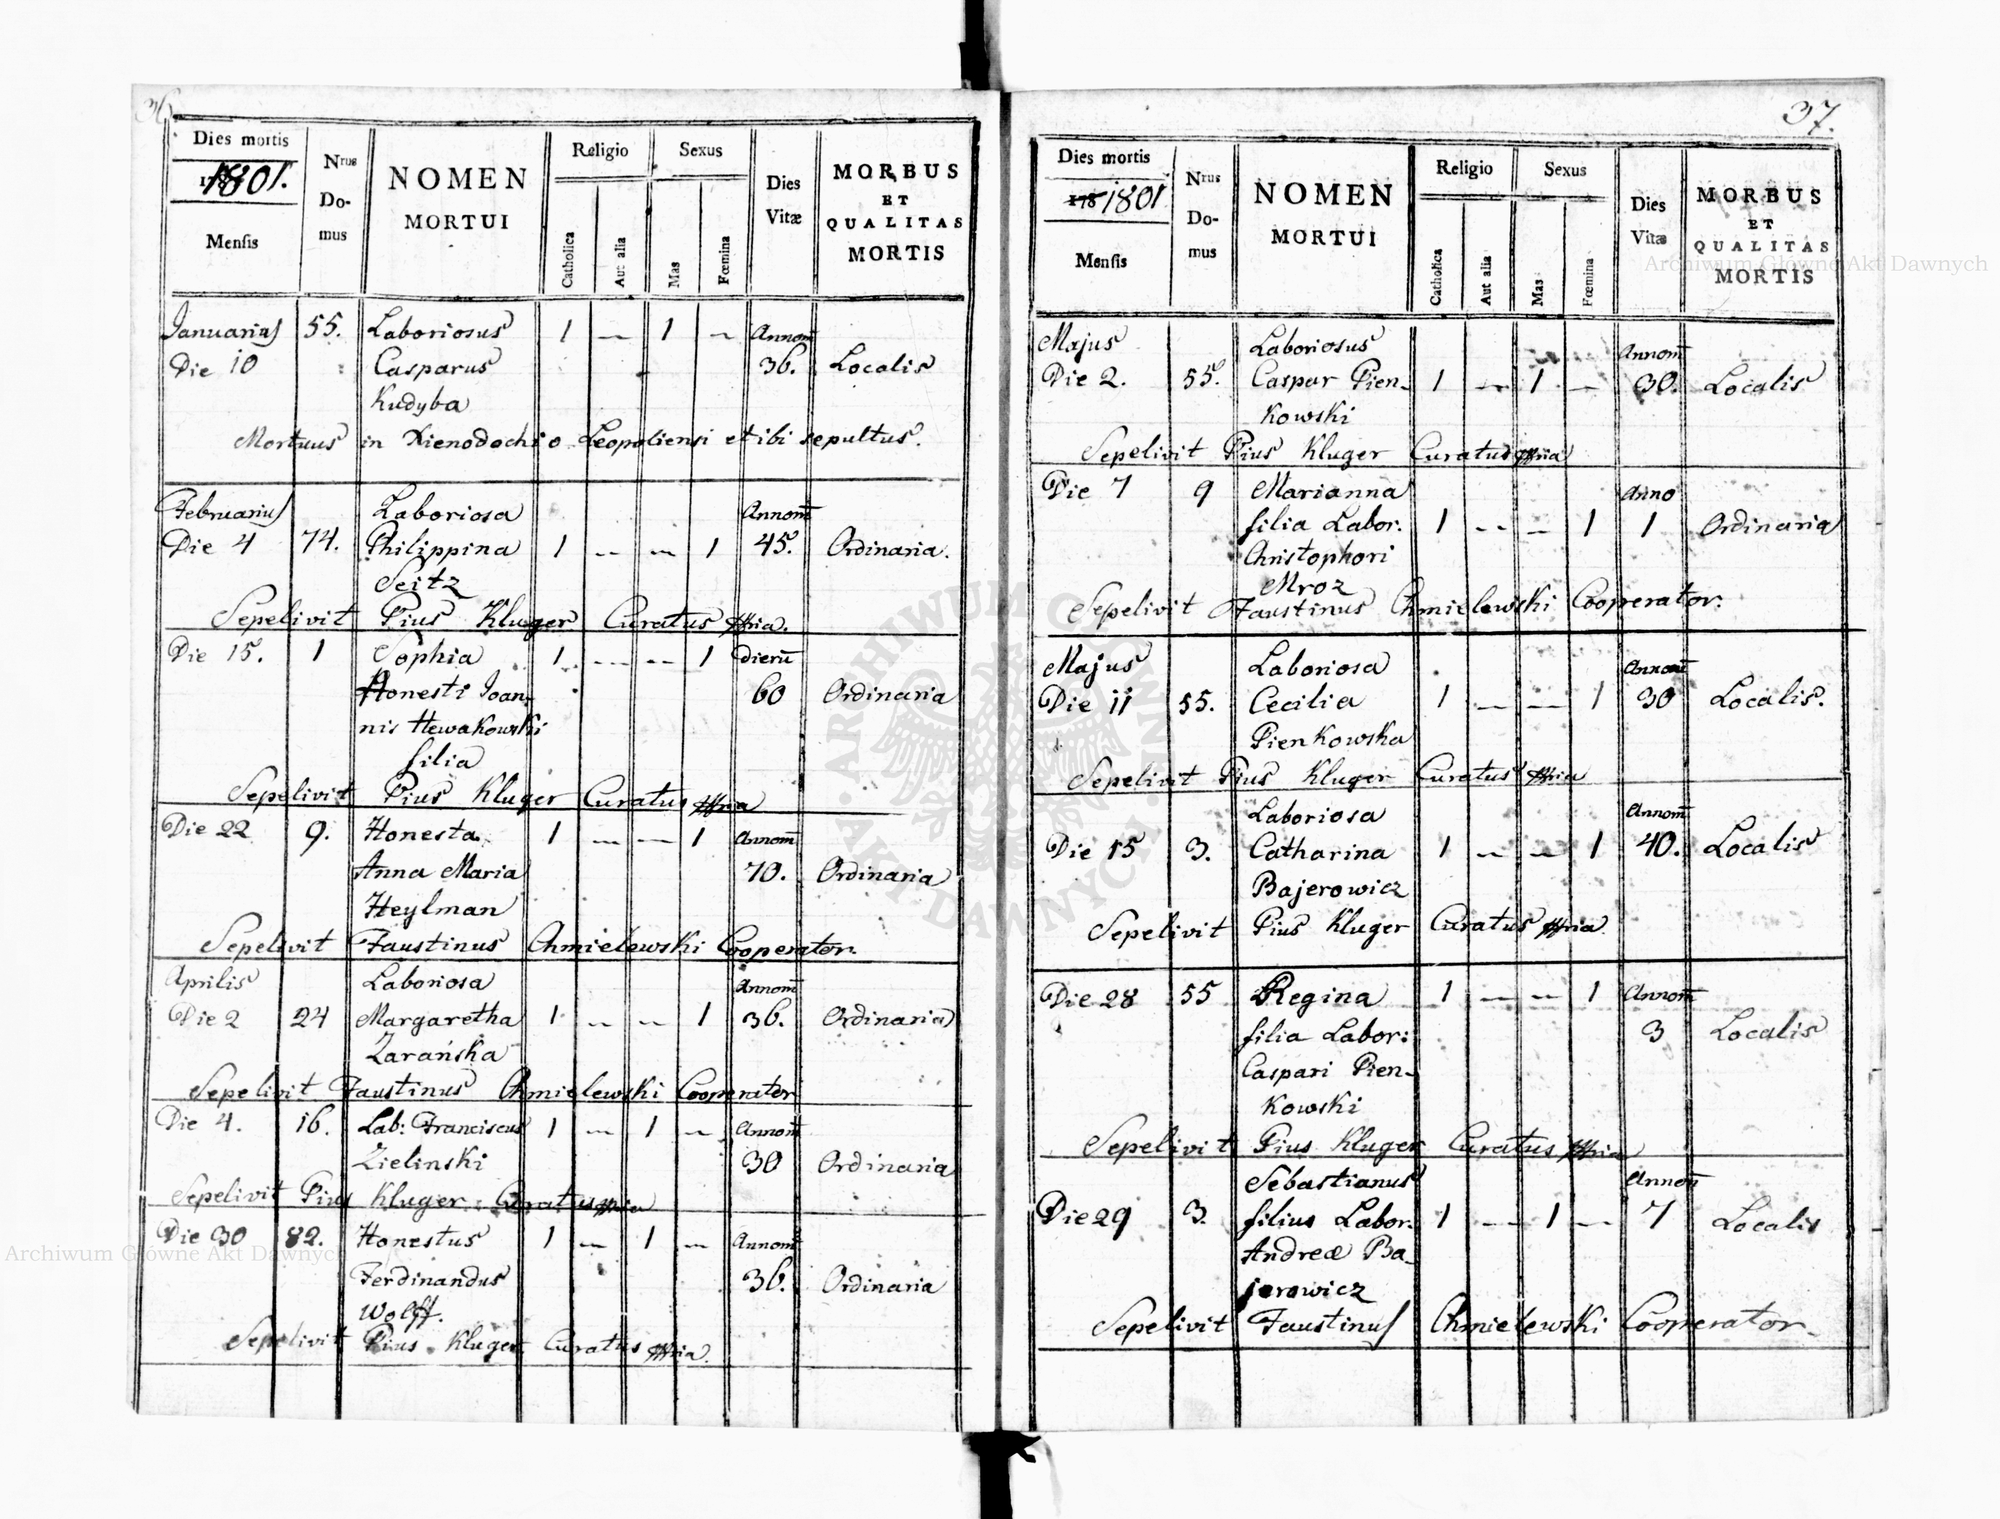 36.
Dies mortis
1801.
Mensis
Nrus
Do-
mus
NOMEN
MORTUI
Religio
Catholica
Aut alia
Sexus
Mas
Fœmina
Dies
Vitæ
MORBUS
ET
QUALITAS
MORTIS
Januarius 55. Laboriosus 1 — 1 — Annom̄
Die 10 Casparus 36. Localis
Kudyba
Mortuus in Xienodochio Leopoliensi et ibi sepultus.
Februarius Laboriosa Annom̄
Die 4 74. Philippina 1 — — 1 45. Ordinaria.
Seitz
Sepelivit Pius Kluger Curatus mria.
Die 15. 1 Sophia 1 — — 1 dierū
Honesti Joan- 60 Ordinaria
nis Hewakowski
filia
Sepelivit Pius Kluger Curatus mria
Die 22 9. Honesta 1 — — 1 Annom̄
Anna Maria 70. Ordinaria
Heylman
Sepelivit Faustinus Chmielewski Cooperator.
Aprilis Laboriosa Annom̄
Die 2 24 Margaretha 1 — — 1 36. Ordinaria
Zarańska
Sepelivit Faustinus Chmielewski Cooperator
Die 4. 16. Lab: Franciscus 1 — 1 — Annom̄
Zielinski 30 Ordinaria
Sepelivit Pius Kluger Curatus mria
Die 30 82. Honestus 1 — 1 — Annom̄
Ferdinandus 36. Ordinaria
Wolff.
Sepelivit Pius Kluger Curatus mria.
37.
Dies mortis
178 1801
Mensis
Nrus
Do-
mus
NOMEN
MORTUI
Religio
Catholica
Aut alia
Sexus
Mas
Fœmina
Dies
Vitæ
MORBUS
ET
QUALITAS
MORTIS
Majus Laboriosus Annom̄
Die 2. 55. Caspar Pien- 1 — 1 — 30. Localis
kowski
Sepelivit Pius Kluger Curatus mria
Die 7 9 Marianna Anno
filia Labor: 1 — — 1 1 Ordinaria
Christophori
Mroz
Sepelivit Faustinus Chmielewski Cooperator.
Majus Laboriosa Annom̄
Die 11 55. Cecilia 1 — — 1 30 Localis.
Pienkowska
Sepelivit Pius Kluger Curatus mria
Laboriosa Annom̄
Die 15 3. Catharina 1 — — 1 40. Localis
Bajerowicz
Sepelivit Pius Kluger Curatus mria
Die 28 55 Regina 1 — — 1 Annom̄
filia Labor: 3 Localis
Caspari Pien-
kowski
Sepelivit Pius Kluger Curatus mria
Sebastianus Annom̄
Die 29 3. filius Labor. 1 — 1 — 7 Localis
Andreæ Ba-
jerowicz
Sepelivit Faustinus Chmielewski Cooperator.
Archiwum Główne Akt Dawnych
Archiwum Główne Akt Dawnych
ARCHIWUM GŁÓWNE AKT DAWNYCH